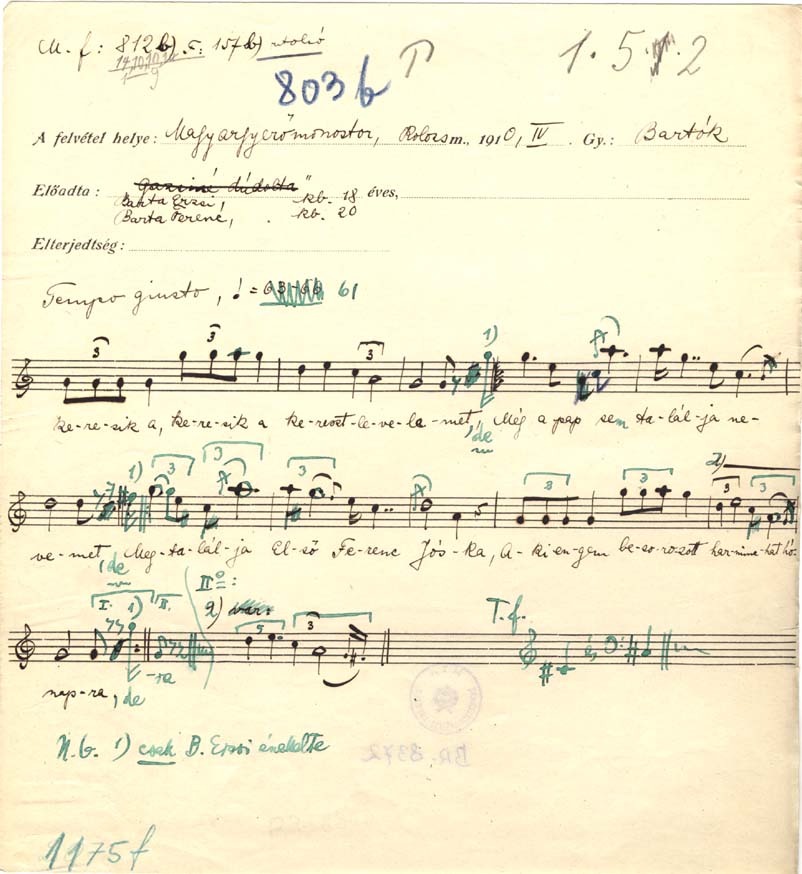 M. f: 812b) .r: 157b) utolsó
803 b
1. 5. 2
A felvétel helye: Magyargyerőmonostor, Kolozsm., 1910, IV. Gy.: Bartók
Előadta:
Banta Erzsi, kb. 18 éves,
Barta Ferenc, kb. 20
Elterjedtség:
Tempo giusto, ♩ = 61
3 3 3 1)
ke-re-sik a, ke-re-sik a kereszt-le-ve-la-met, Még a pap sem ta-lál-ja ne-
de
1) 3 3 3 3 3 2) 3 3
ve-met Meg-ta-lál-ja El-ső Fe-renc Jós-ka, A-ki en-gem be-so-ro-zott har-minc-hat hó-
de
I. 1) II. IIº:
2) 5 3 T.f.
nap-ra, de -ra
és
N.b. 1) csak B. Erzsi énekelte
BR. 8372
1175f